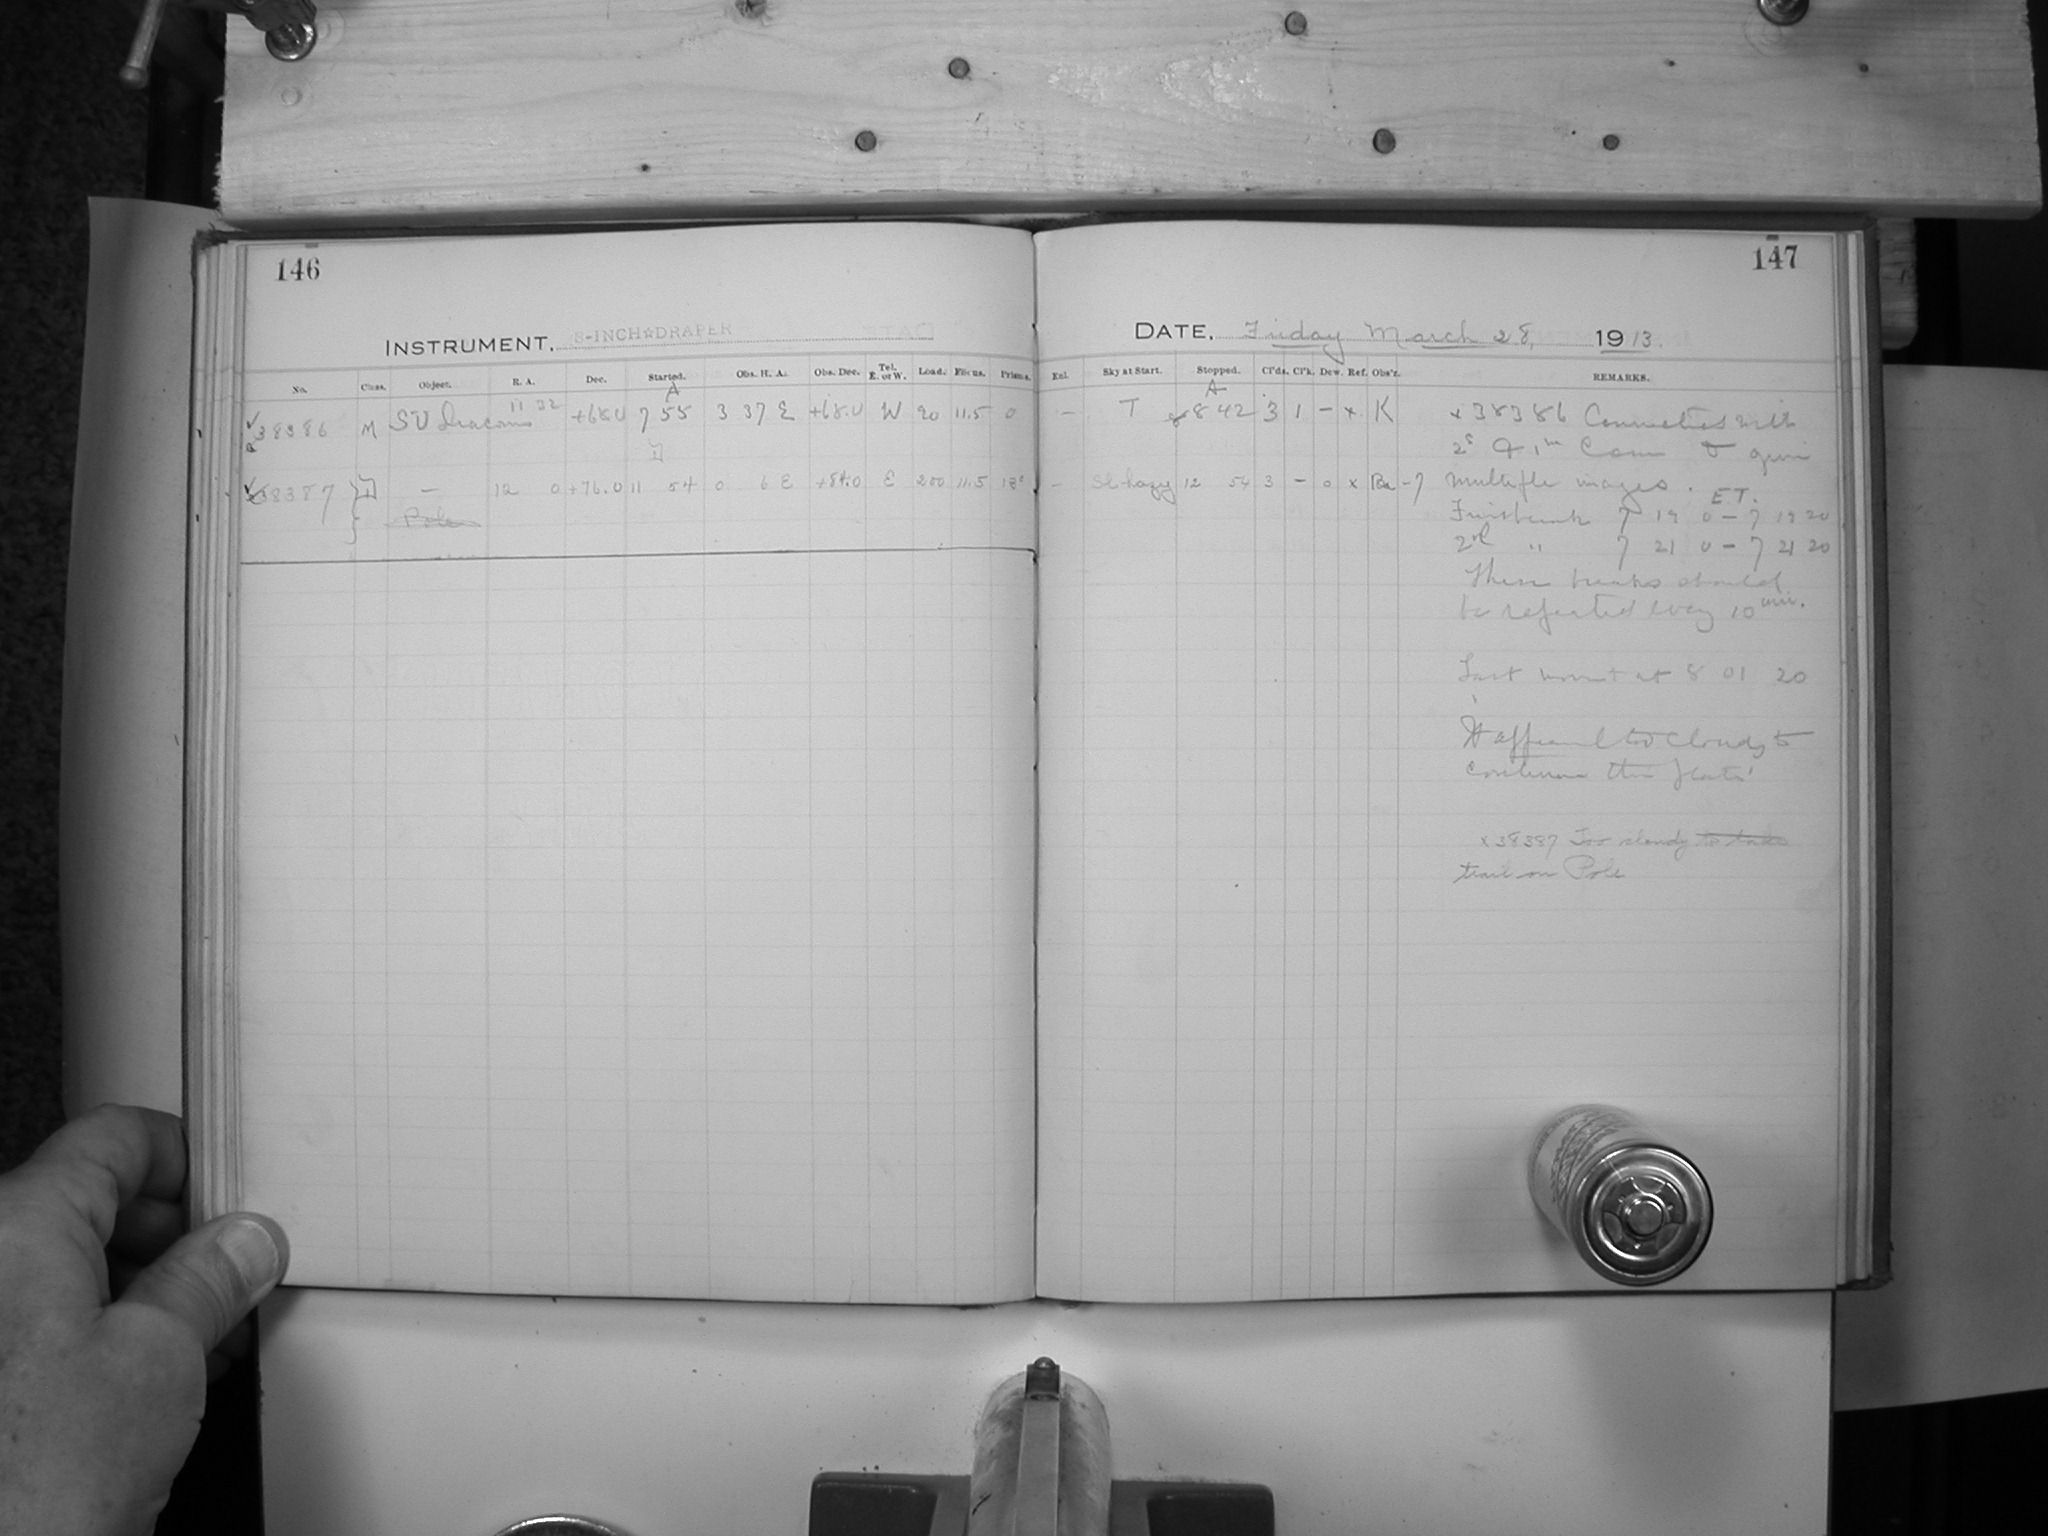 146
INSTRUMENT. 8-INCH☆DRAPER
No. Class. Object. R. A. Dec. Started. Obs. H. A. Obs. Dec. Tel. E. or W. Load. Focus. Prisms.
A
38386 M SU Draconis 11 32 +68.0 7 55 3 37 E +68.0 W 20 11.5 0
38387 — 12 0 +76.0 11 54 0 6 E +84.0 E 200 11.5
Pole
147
DATE, Friday March 28, 1913.
Enl. Sky at Start. Stopped. Cl'ds. Cl'k. Dew. Ref. Obs'r. REMARKS.
A
— T 8 42 3 1 — x K x 38386 Connected with
2s & 1m Cam to give
— Sl. hazy 12 54 3 — 0 x Ba -7 multiple images.
E.T.
7 19 0 — 7 19 20
2nd " 7 21 0 — 7 21 20
These breaks should
be repeated every 10 min.
Last at 8 01 20
It appeared too cloudy to
continue this plate
x 38387 Too cloudy to take
trail on Pole